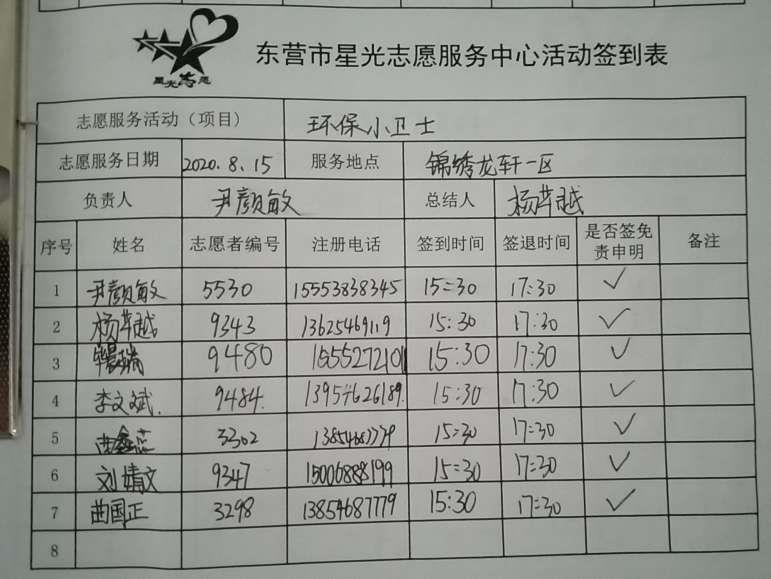 星光志愿
东营市星光志愿服务中心活动签到表
志愿服务活动（项目） 环保小卫士
志愿服务日期 2020.8.15 服务地点 锦绣龙轩一区
负责人 尹颜敏 总结人 杨苹越
序号 姓名 志愿者编号 注册电话 签到时间 签退时间 是否签免责申明 备注
1 尹颜敏 5530 15553838345 15:30 17:30 ✓
2 杨苹越 9343 13625469119 15:30 17:30 ✓
3 9480 1555272101 15:30 17:30 ✓
4 李文斌. 9484. 13954626189. 15:30 17:30 ✓
5 3302 15:30 17:30 ✓
6 刘婧文 9347 15006888199 15:30 17:30 ✓
7 曲国正 3298 13854687779 15:30 17:30 ✓
8